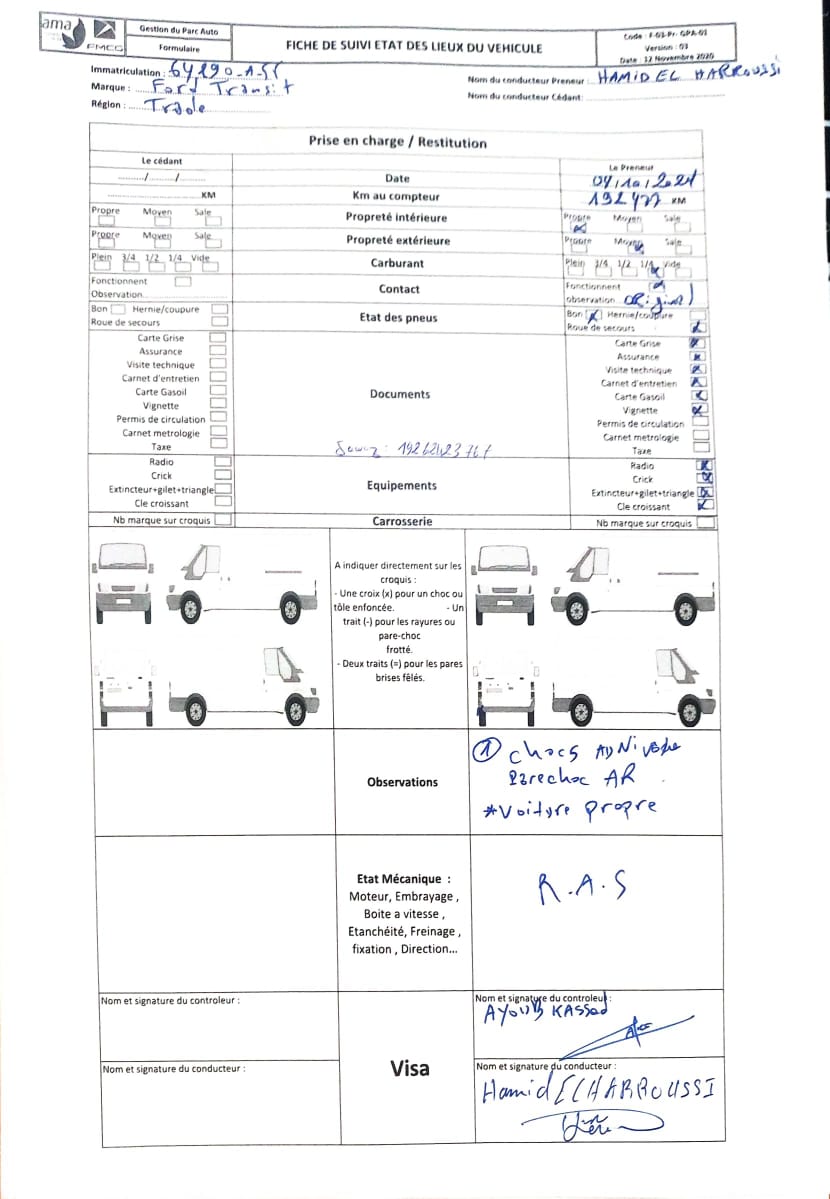 ama
FMCG
Gestion du Parc Auto
Formulaire
FICHE DE SUIVI ETAT DES LIEUX DU VEHICULE
Code : F-03-Pr- GPA-01
Version : 03
Date : 12 Novembre 2020
Immatriculation : 64290-A-
Marque : Ford Transit
Région : Trade
Nom du conducteur Preneur : HAMID EL HARROUSSI
Nom du conducteur Cédant:
Prise en charge / Restitution
Le cédant
Le Preneur
....../....../...... Date 04/10/2021
KM Km au compteur 192477 KM
Propre Moyen Sale Propreté intérieure Propre Moyen Sale
Propre Moyen Sale Propreté extérieure Propre Moyen Sale
Plein 3/4 1/2 1/4 Vide Carburant Plein 3/4 1/2 1/4 Vide
Fonctionnent Contact Fonctionnent
Observation observation original
Bon Hernie/coupure Etat des pneus Bon Hernie/coupure
Roue de secours Roue de secours
Carte Grise Carte Grise
Assurance Assurance
Visite technique Visite technique
Carnet d'entretien Carnet d'entretien
Carte Gasoil Documents Carte Gasoil
Vignette Vignette
Permis de circulation Permis de circulation
Carnet metrologie Carnet metrologie
Taxe Taxe
Radio Radio
Crick Crick
Extincteur+gilet+triangle Equipements Extincteur+gilet+triangle
Cle croissant Cle croissant
Nb marque sur croquis Carrosserie Nb marque sur croquis
A indiquer directement sur les
croquis :
- Une croix (x) pour un choc ou
tôle enfoncée. - Un
trait (-) pour les rayures ou
pare-choc
frotté.
- Deux traits (=) pour les pares
brises fêlés.
Observations
① chocs AU Niveau
Parechoc AR
*Voiture propre
Etat Mécanique :
Moteur, Embrayage ,
Boite a vitesse ,
Etanchéité, Freinage ,
fixation , Direction...
R.A.S
Nom et signature du controleur :
Nom et signature du controleur :
AYOUB KASSed
Visa
Nom et signature du conducteur :
Nom et signature du conducteur :
Hamid ELHARROUSSI